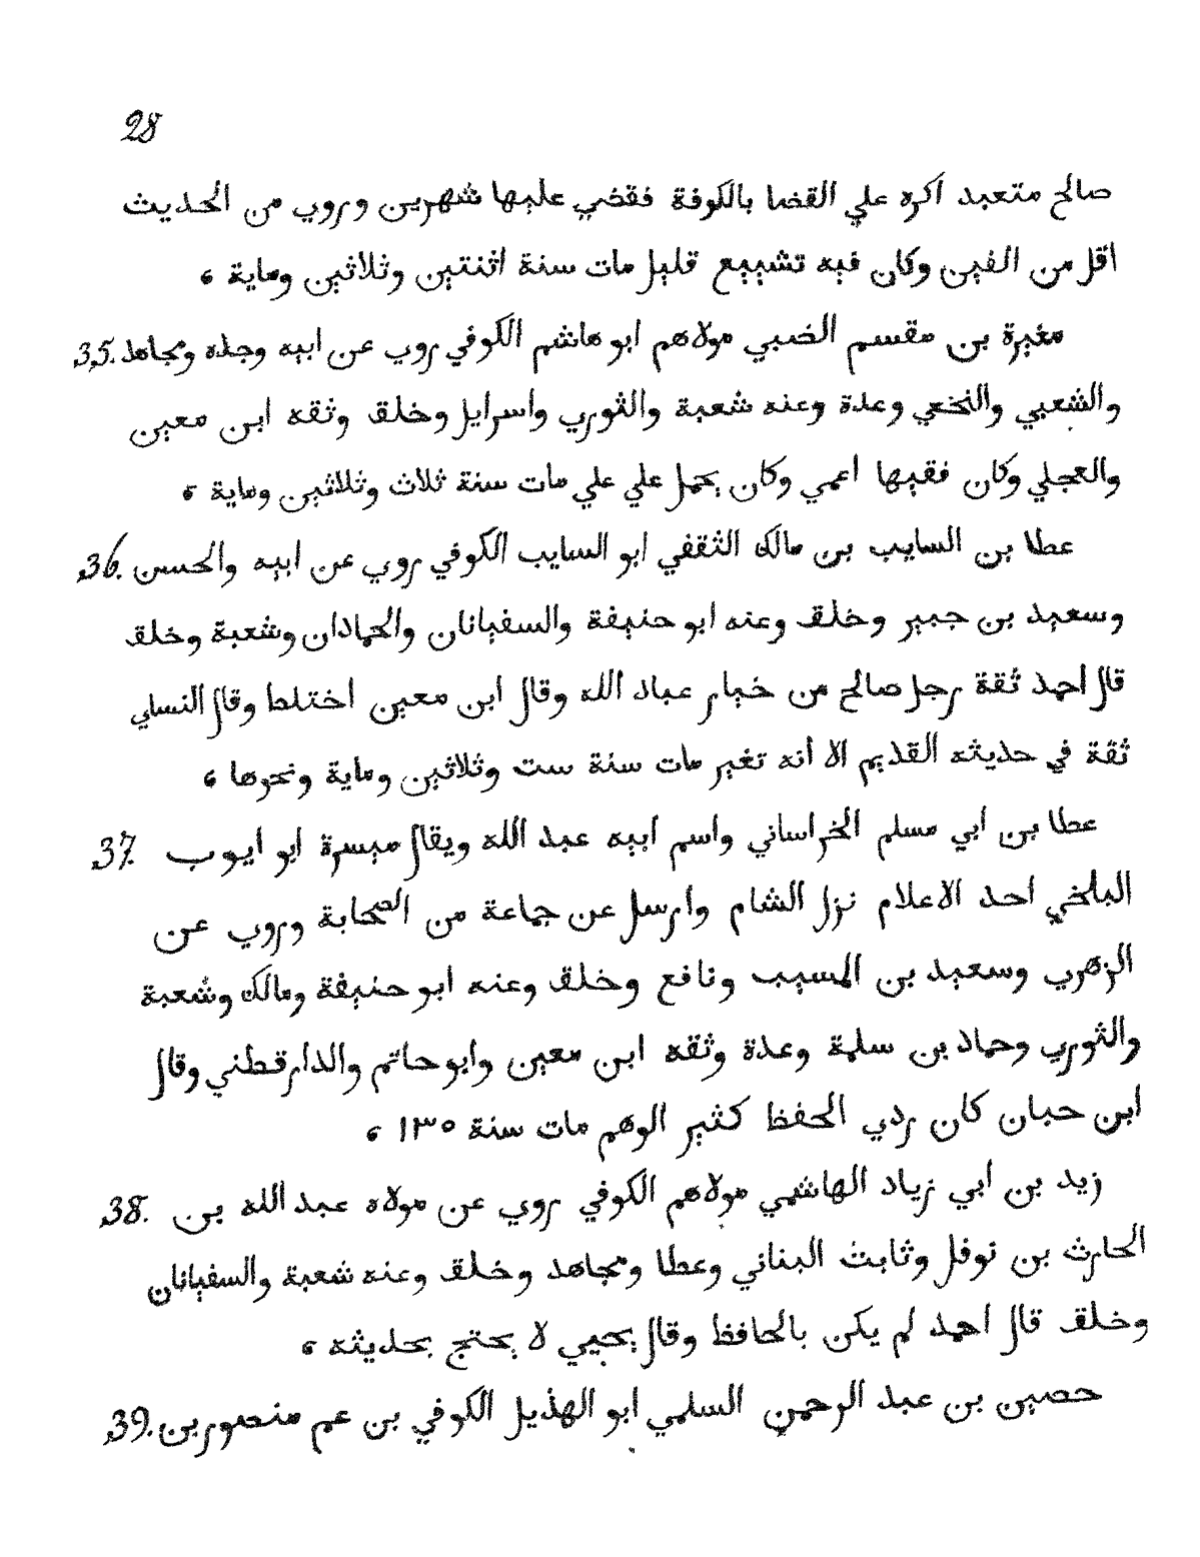 28
صالح متعبد اكره علي القضا بالكوفة فقضي عليها شهرين وروي من الحديث
اقل من الفين وكان فيه تشييع قليل مات سنة اثنتين وثلاثين وماية ،
مغيرة بن مقسم الضبي مولاهم ابو هاشم الكوفي روي عن ابيه وجده ومجاهد .35
والشعبي والنخعي وعدة وعنه شعبة والثوري واسرايل وخلق وثقه ابن معين
والعجلي وكان فقيها اعمي وكان يحمل علي علي مات سنة ثلاث وثلاثين وماية ،
عطا بن السايب بن مالك الثقفي ابو السايب الكوفي روي عن ابيه والحسن .36
وسعيد بن جبير وخلق وعنه ابو حنيفة والسفيانان والحمادان وشعبة وخلق
قال احمد ثقة رجل صالح من خيار عباد الله وقال ابن معين اختلط وقال النساي
ثقة في حديثه القديم الا أنه تغير مات سنة ست وثلاثين وماية ونحوها ،
عطا بن أبي مسلم الخراساني واسم ابيه عبد الله ويقال ميسرة ابو ايوب .37
البلخي احد الاعلام نزل الشام وارسل عن جماعة من الصحابة وروي عن
الزهري وسعيد بن المسيب ونافع وخلق وعنه ابو حنيفة ومالك وشعبة
والثوري وحماد بن سلمة وعدة وثقه ابن معين وابو حاتم والدارقطني وقال
ابن حبان كان ردي الحفظ كثير الوهم مات سنة ١٣٥ ،
زيد بن أبي زياد الهاشمي مولاهم الكوفي روي عن مولاه عبد الله بن .38
الحارث بن نوفل وثابث البناني وعطا ومجاهد وخلق وعنه شعبة والسفيانان
وخلق قال احمد لم يكن بالحافظ وقال يحيي لا يحتج بحديثه ،
حصين بن عبد الرحمن السلمي ابو الهذيل الكوفي بن عم منصور بن .39